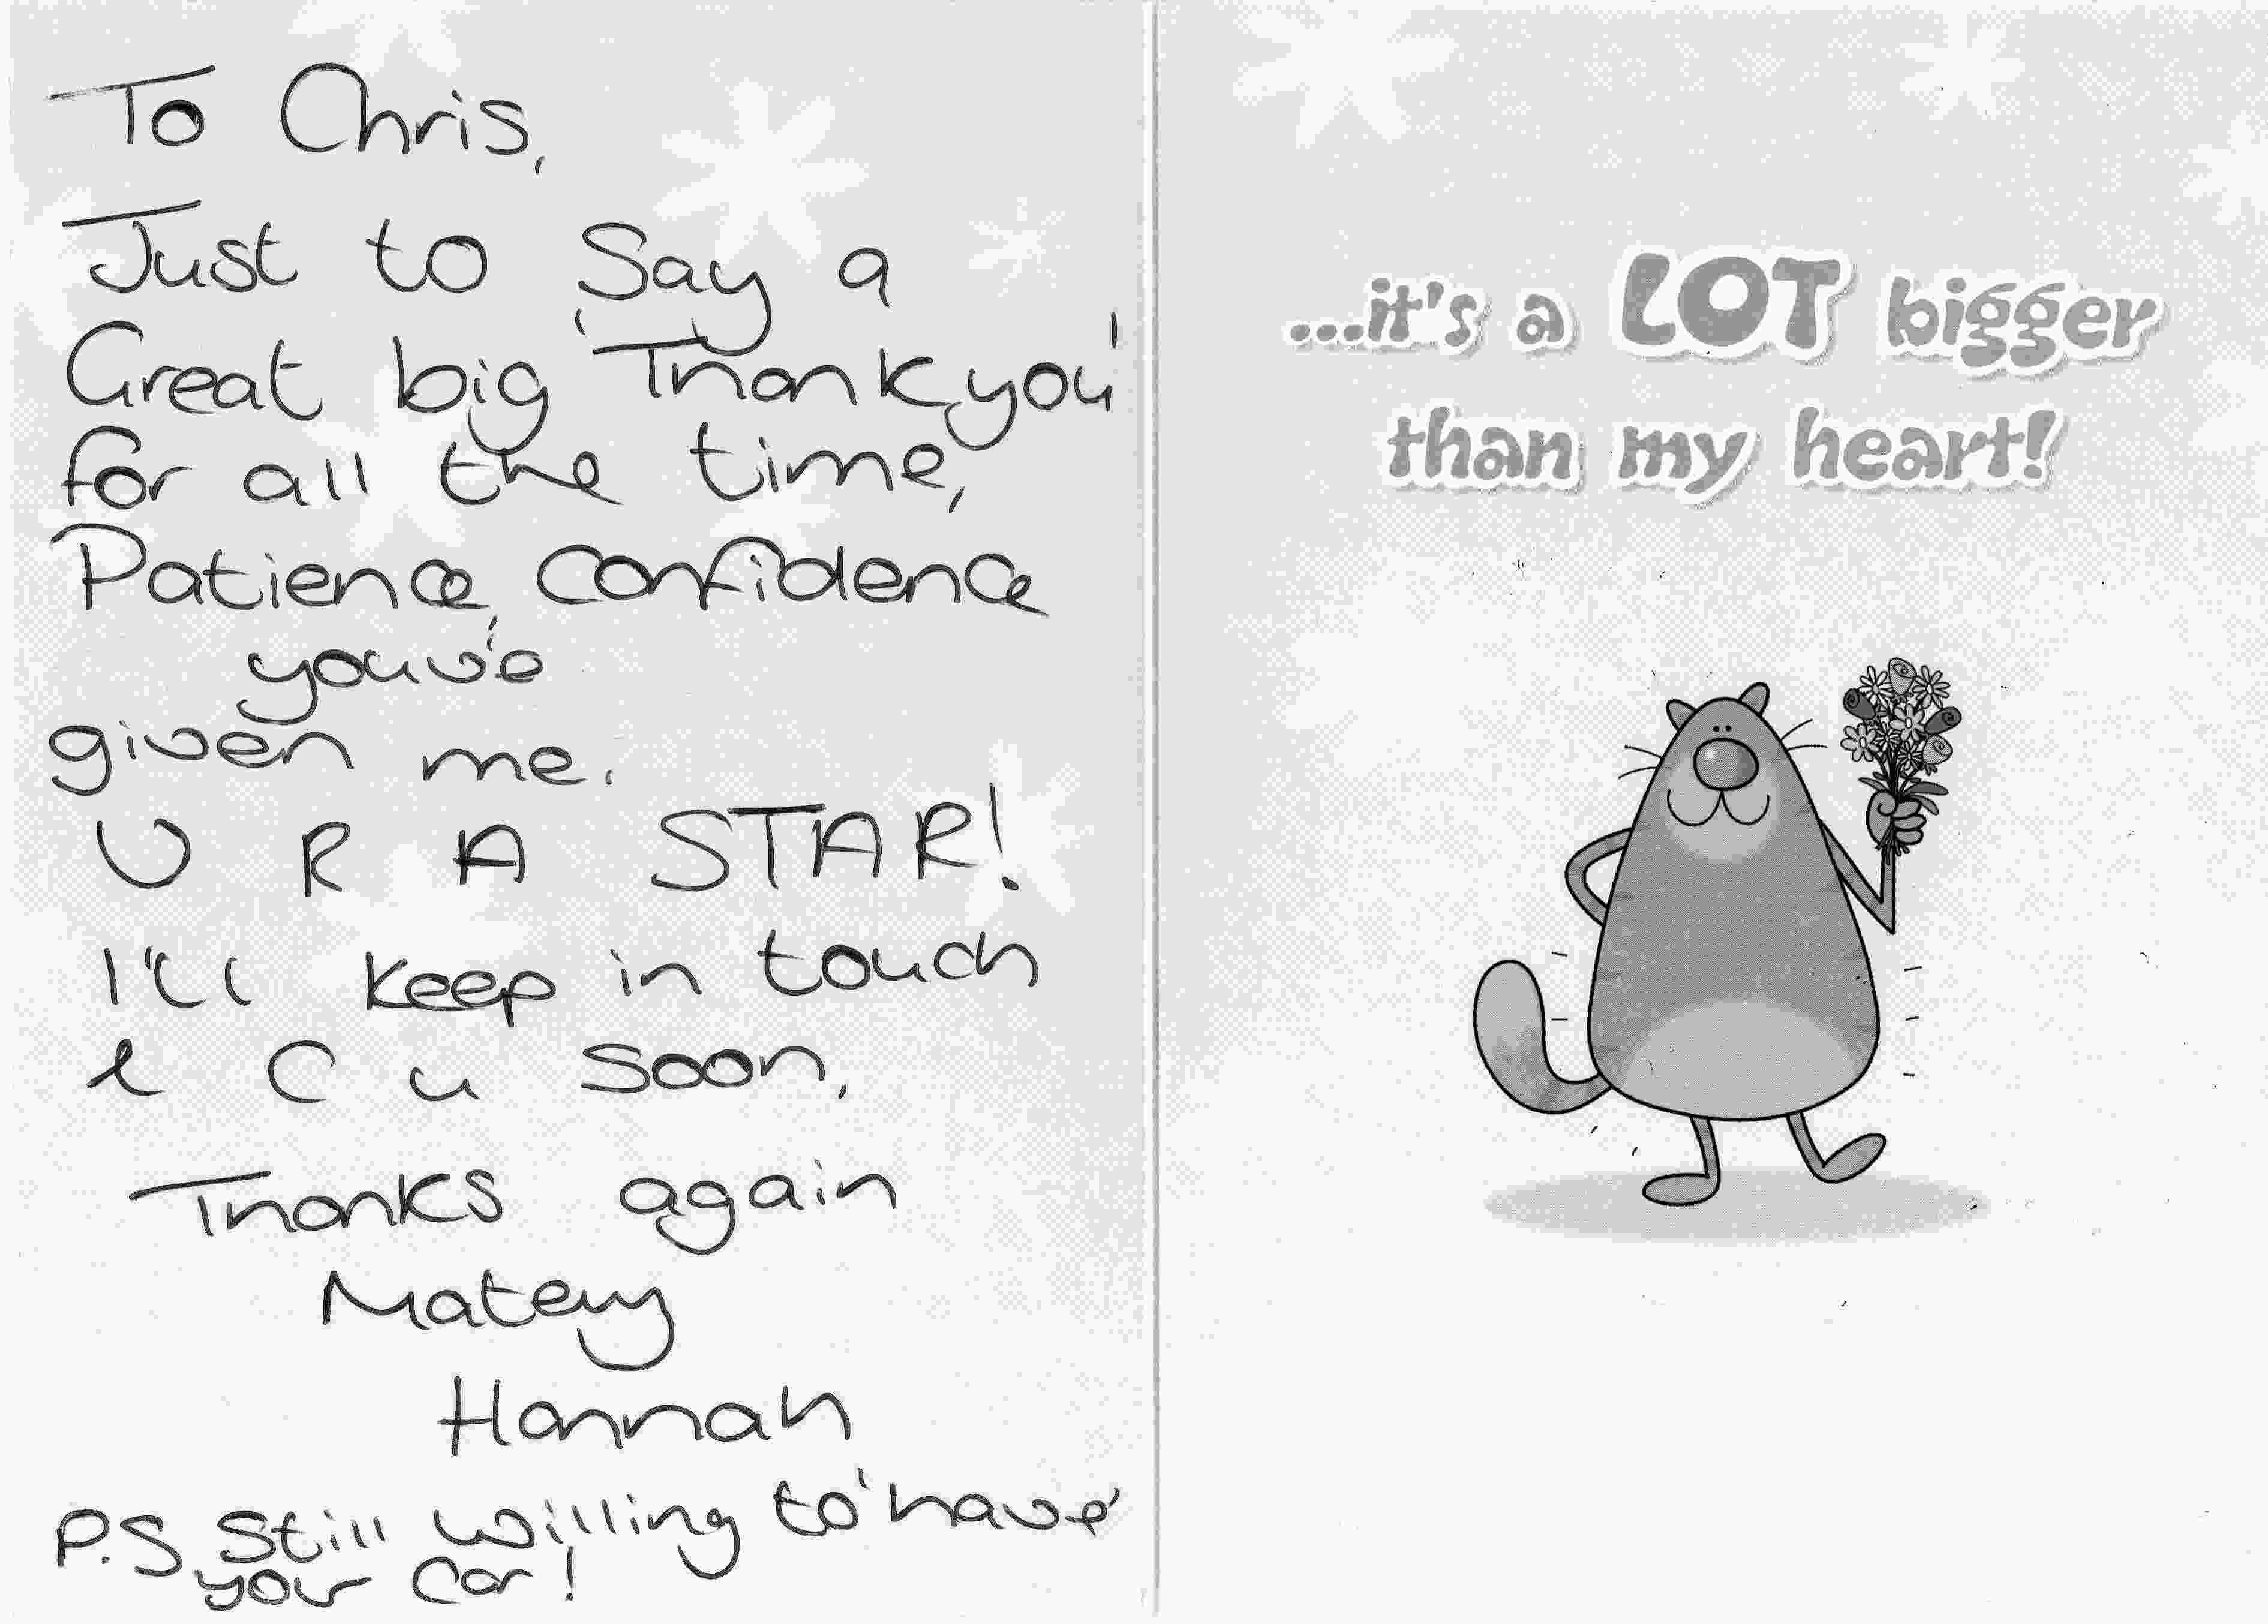 To Chris,
Just to Say a
Great big 'Thankyou'
for all the time,
Patience, confidence
you've
given me.
U R A STAR!
I'll keep in touch
& C u soon,
Thanks again
Matey
Hannah
P.S Still willing to 'have'
your car!
...it's a LOT bigger
than my heart!